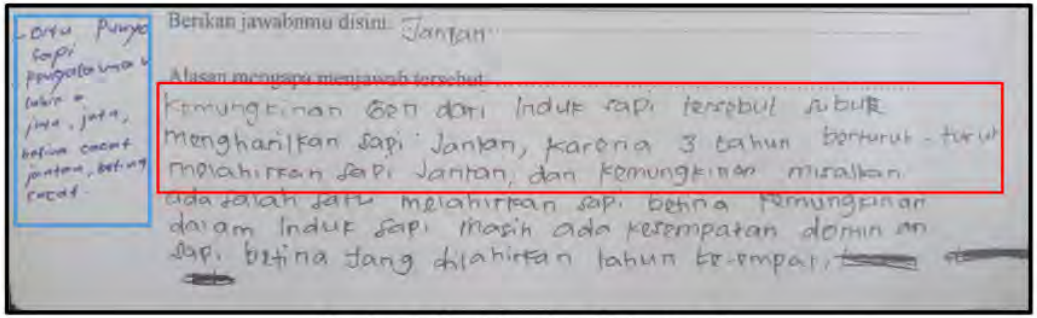 - Ortu Punya
sapi
pengalaman
lahir =
jntn, jntn,
betina cacat
jantan, beting
cacat.
Berikan jawabnmu disini. Jantan
Alasan mengapa menjawab tersebut
Kemungkinan Gen dari Induk sapi tersebut subur
menghasilkan sapi Jantan, Karena 3 tahun berturut-turut
melahirkan sapi Jantan, dan kemungkinan misalkan
ada salah satu melahirkan sapi betina kemungkinan
dalam Induk sapi masih ada kesempatan dominan
sapi betina yang dilahirkan tahun ke-empat,